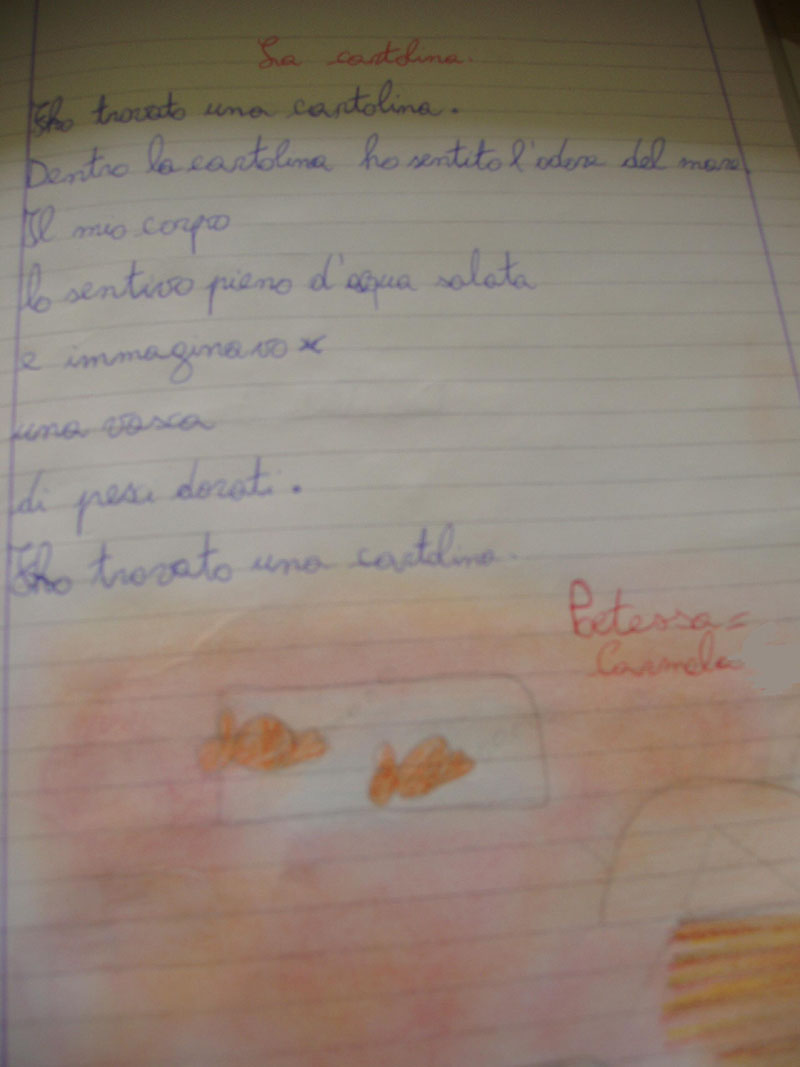 La cartolina.
Ho trovato una cartolina.
Dentro la cartolina ho sentito l'odore del mare.
Il mio corpo
lo sentivo pieno d'acqua salata
e immaginavo
una vasca
di pesci dorati.
Ho trovato una cartolina.
Poetessa=
Carmela